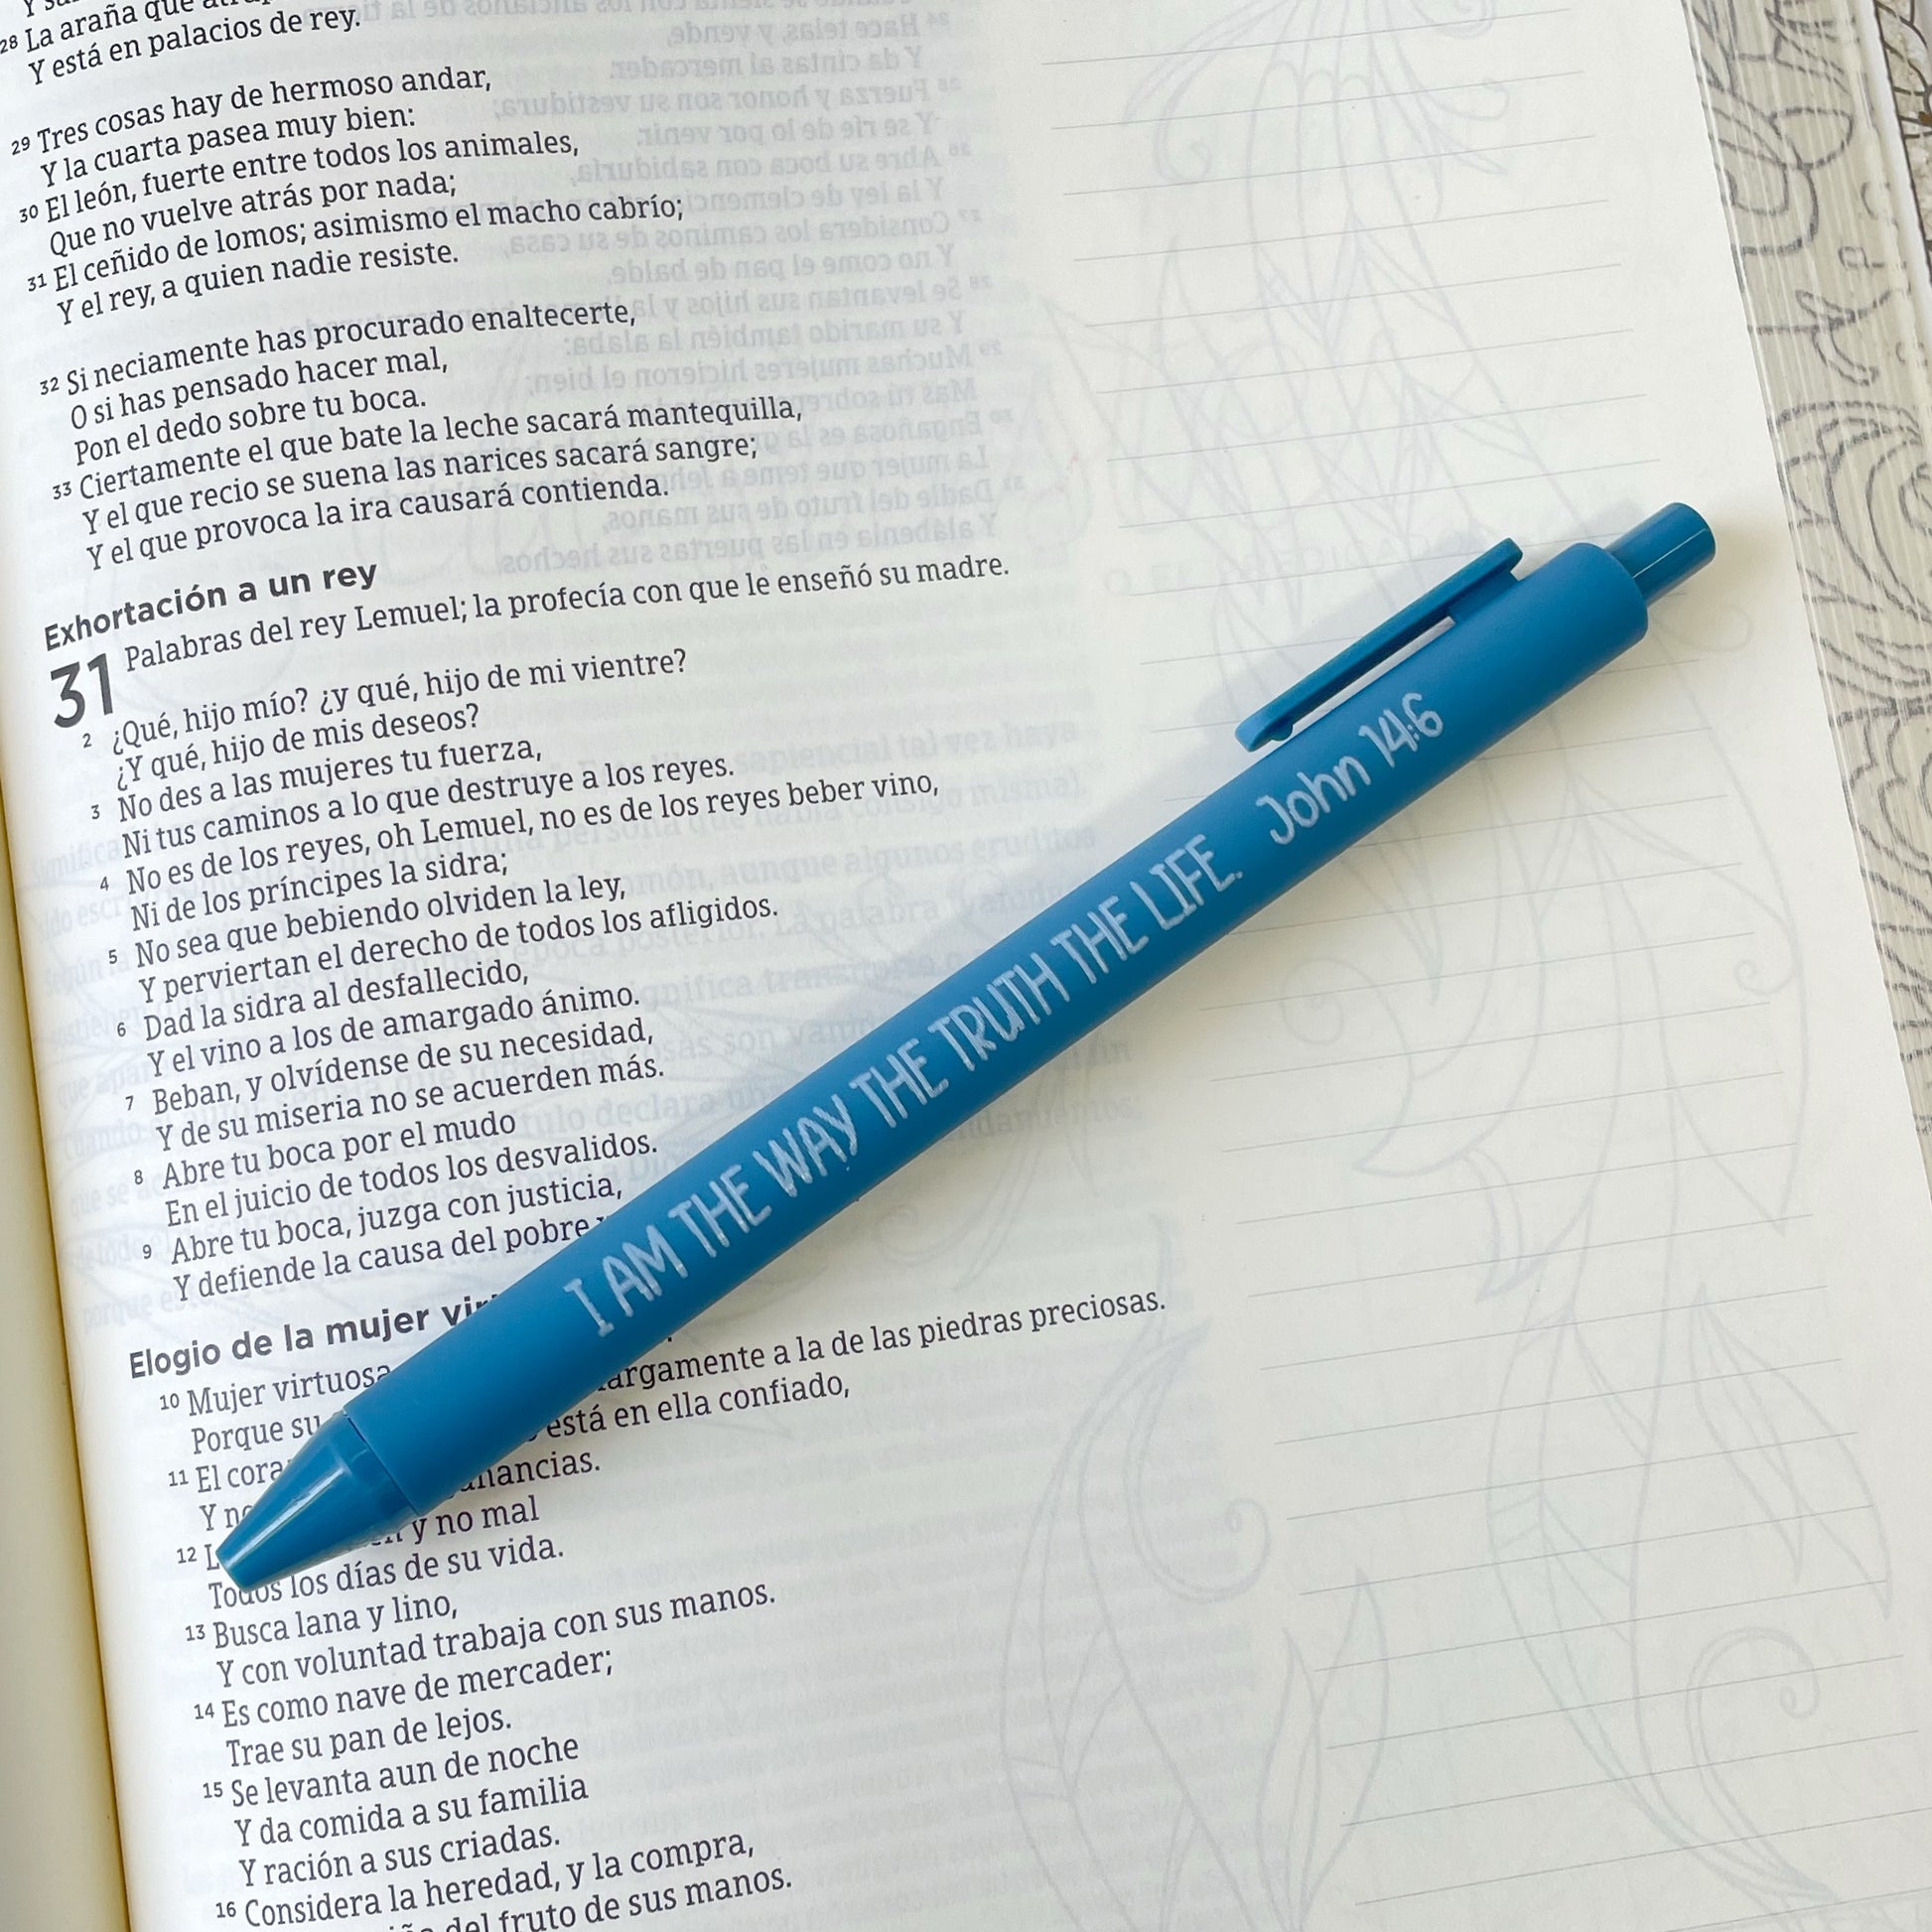 28 La araña que
Y está en palacios de rey.
29 Tres cosas hay de hermoso andar,
Y la cuarta pasea muy bien:
30 El león, fuerte entre todos los animales,
Que no vuelve atrás por nada;
31 El ceñido de lomos; asimismo el macho cabrío;
Y el rey, a quien nadie resiste.
32 Si neciamente has procurado enaltecerte,
O si has pensado hacer mal,
Pon el dedo sobre tu boca.
33 Ciertamente el que bate la leche sacará mantequilla,
Y el que recio se suena las narices sacará sangre;
Y el que provoca la ira causará contienda.
Exhortación a un rey
31 Palabras del rey Lemuel; la profecía con que le enseñó su madre.
2 ¿Qué, hijo mío? ¿y qué, hijo de mi vientre?
¿Y qué, hijo de mis deseos?
3 No des a las mujeres tu fuerza,
Ni tus caminos a lo que destruye a los reyes.
4 No es de los reyes, oh Lemuel, no es de los reyes beber vino,
Ni de los príncipes la sidra;
5 No sea que bebiendo olviden la ley,
Y perviertan el derecho de todos los afligidos.
6 Dad la sidra al desfallecido,
Y el vino a los de amargado ánimo.
7 Beban, y olvídense de su necesidad,
Y de su miseria no se acuerden más.
8 Abre tu boca por el mudo
En el juicio de todos los desvalidos.
9 Abre tu boca, juzga con justicia,
Y defiende la causa del pobre
Elogio de la mujer
10 Mujer virtuosa
Porque su largamente a la de las piedras preciosas.
11 El está en ella confiado,
Y
12 y no mal
Todos los días de su vida.
13 Busca lana y lino,
Y con voluntad trabaja con sus manos.
14 Es como nave de mercader;
Trae su pan de lejos.
15 Se levanta aun de noche
Y da comida a su familia
Y ración a sus criadas.
16 Considera la heredad, y la compra,
del fruto de sus manos.
I AM THE WAY THE TRUTH THE LIFE. John 14:6